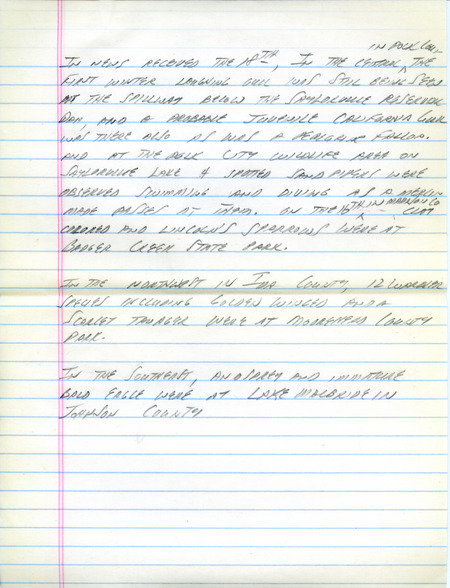 IN POLK COU-
IN NEWS RECEIVED THE 18TH, IN THE CENTRAL, THE
FIRST WINTER LAUGHING GULL WAS STILL BEING SEEN
AT THE SPILLWAY BELOW THE SAYLORVILLE RESERVOIR
DAM, AND A PROBABLE JUVENILE CALIFORNIA GULL
WAS THERE ALSO AS WAS A PEREGRINE FALCON.
AND AT THE POLK CITY WILDLIFE AREA ON
SAYLORVILLE LAKE 4 SPOTTED SANDPIPERS WERE
OBSERVED SWIMMING AND DIVING AS A MERLIN
MADE PASSES AT THEM. ON THE 16TH IN MADISON CO CLAY
COLORED AND LINCOLN'S SPARROWS WERE AT
BADGER CREEK STATE PARK.
IN THE NORTHWEST IN IDA COUNTY, 12 WARBLER
SPECIES INCLUDING GOLDEN WINGED AND A
SCARLET TANAGER WERE AT MOOREHEAD COUNTY
PARK.
IN THE SOUTHEAST, AN OSPREY AND IMMATURE
BALD EAGLE WERE AT LAKE MACBRIDE IN
JOHNSON COUNTY